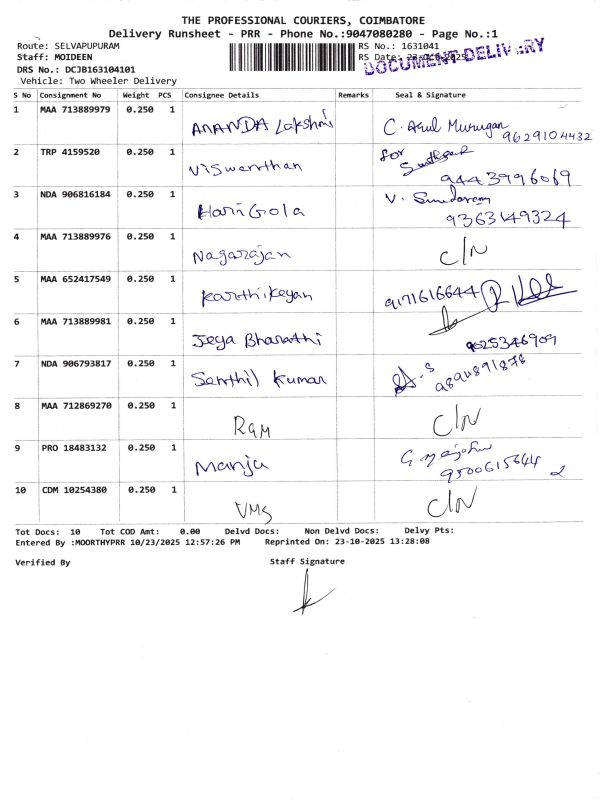 THE PROFESSIONAL COURIERS, COIMBATORE
Delivery Runsheet - PRR - Phone No.:9047080280 - Page No.:1
Route: SELVAPUPURAM
RS No.: 1631041
Staff: MOIDEEN
RS Date: 23-Oct-2025
DOCUMENT DELIVERY
DRS No.: DCJB163104101
Vehicle: Two Wheeler Delivery
S No Consignment No Weight PCS Consignee Details Remarks Seal & Signature
1 MAA 713889979 0.250 1 ANANDA Lakshmi C. Arul Murugan
9629104432
2 TRP 4159520 0.250 1 Viswanthan for
9443996069
3 NDA 906816184 0.250 1 HariGola V. Sundaram
9363149324
4 MAA 713889976 0.250 1 Nagarajan C/N
5 MAA 652417549 0.250 1 Karthikeyan 9171616644
6 MAA 713889981 0.250 1 Jeya Bharathi
9025346909
7 NDA 906793817 0.250 1 Senthil Kumar
9894891878
8 MAA 712869270 0.250 1 Ram C/N
9 PRO 18483132 0.250 1 Manju
9500615644
10 CDM 10254380 0.250 1 VMS C/N
Tot Docs: 10 Tot COD Amt: 0.00 Delvd Docs: Non Delvd Docs: Delvy Pts:
Entered By :MOORTHYPRR 10/23/2025 12:57:26 PM Reprinted On: 23-10-2025 13:28:08
Verified By Staff Signature